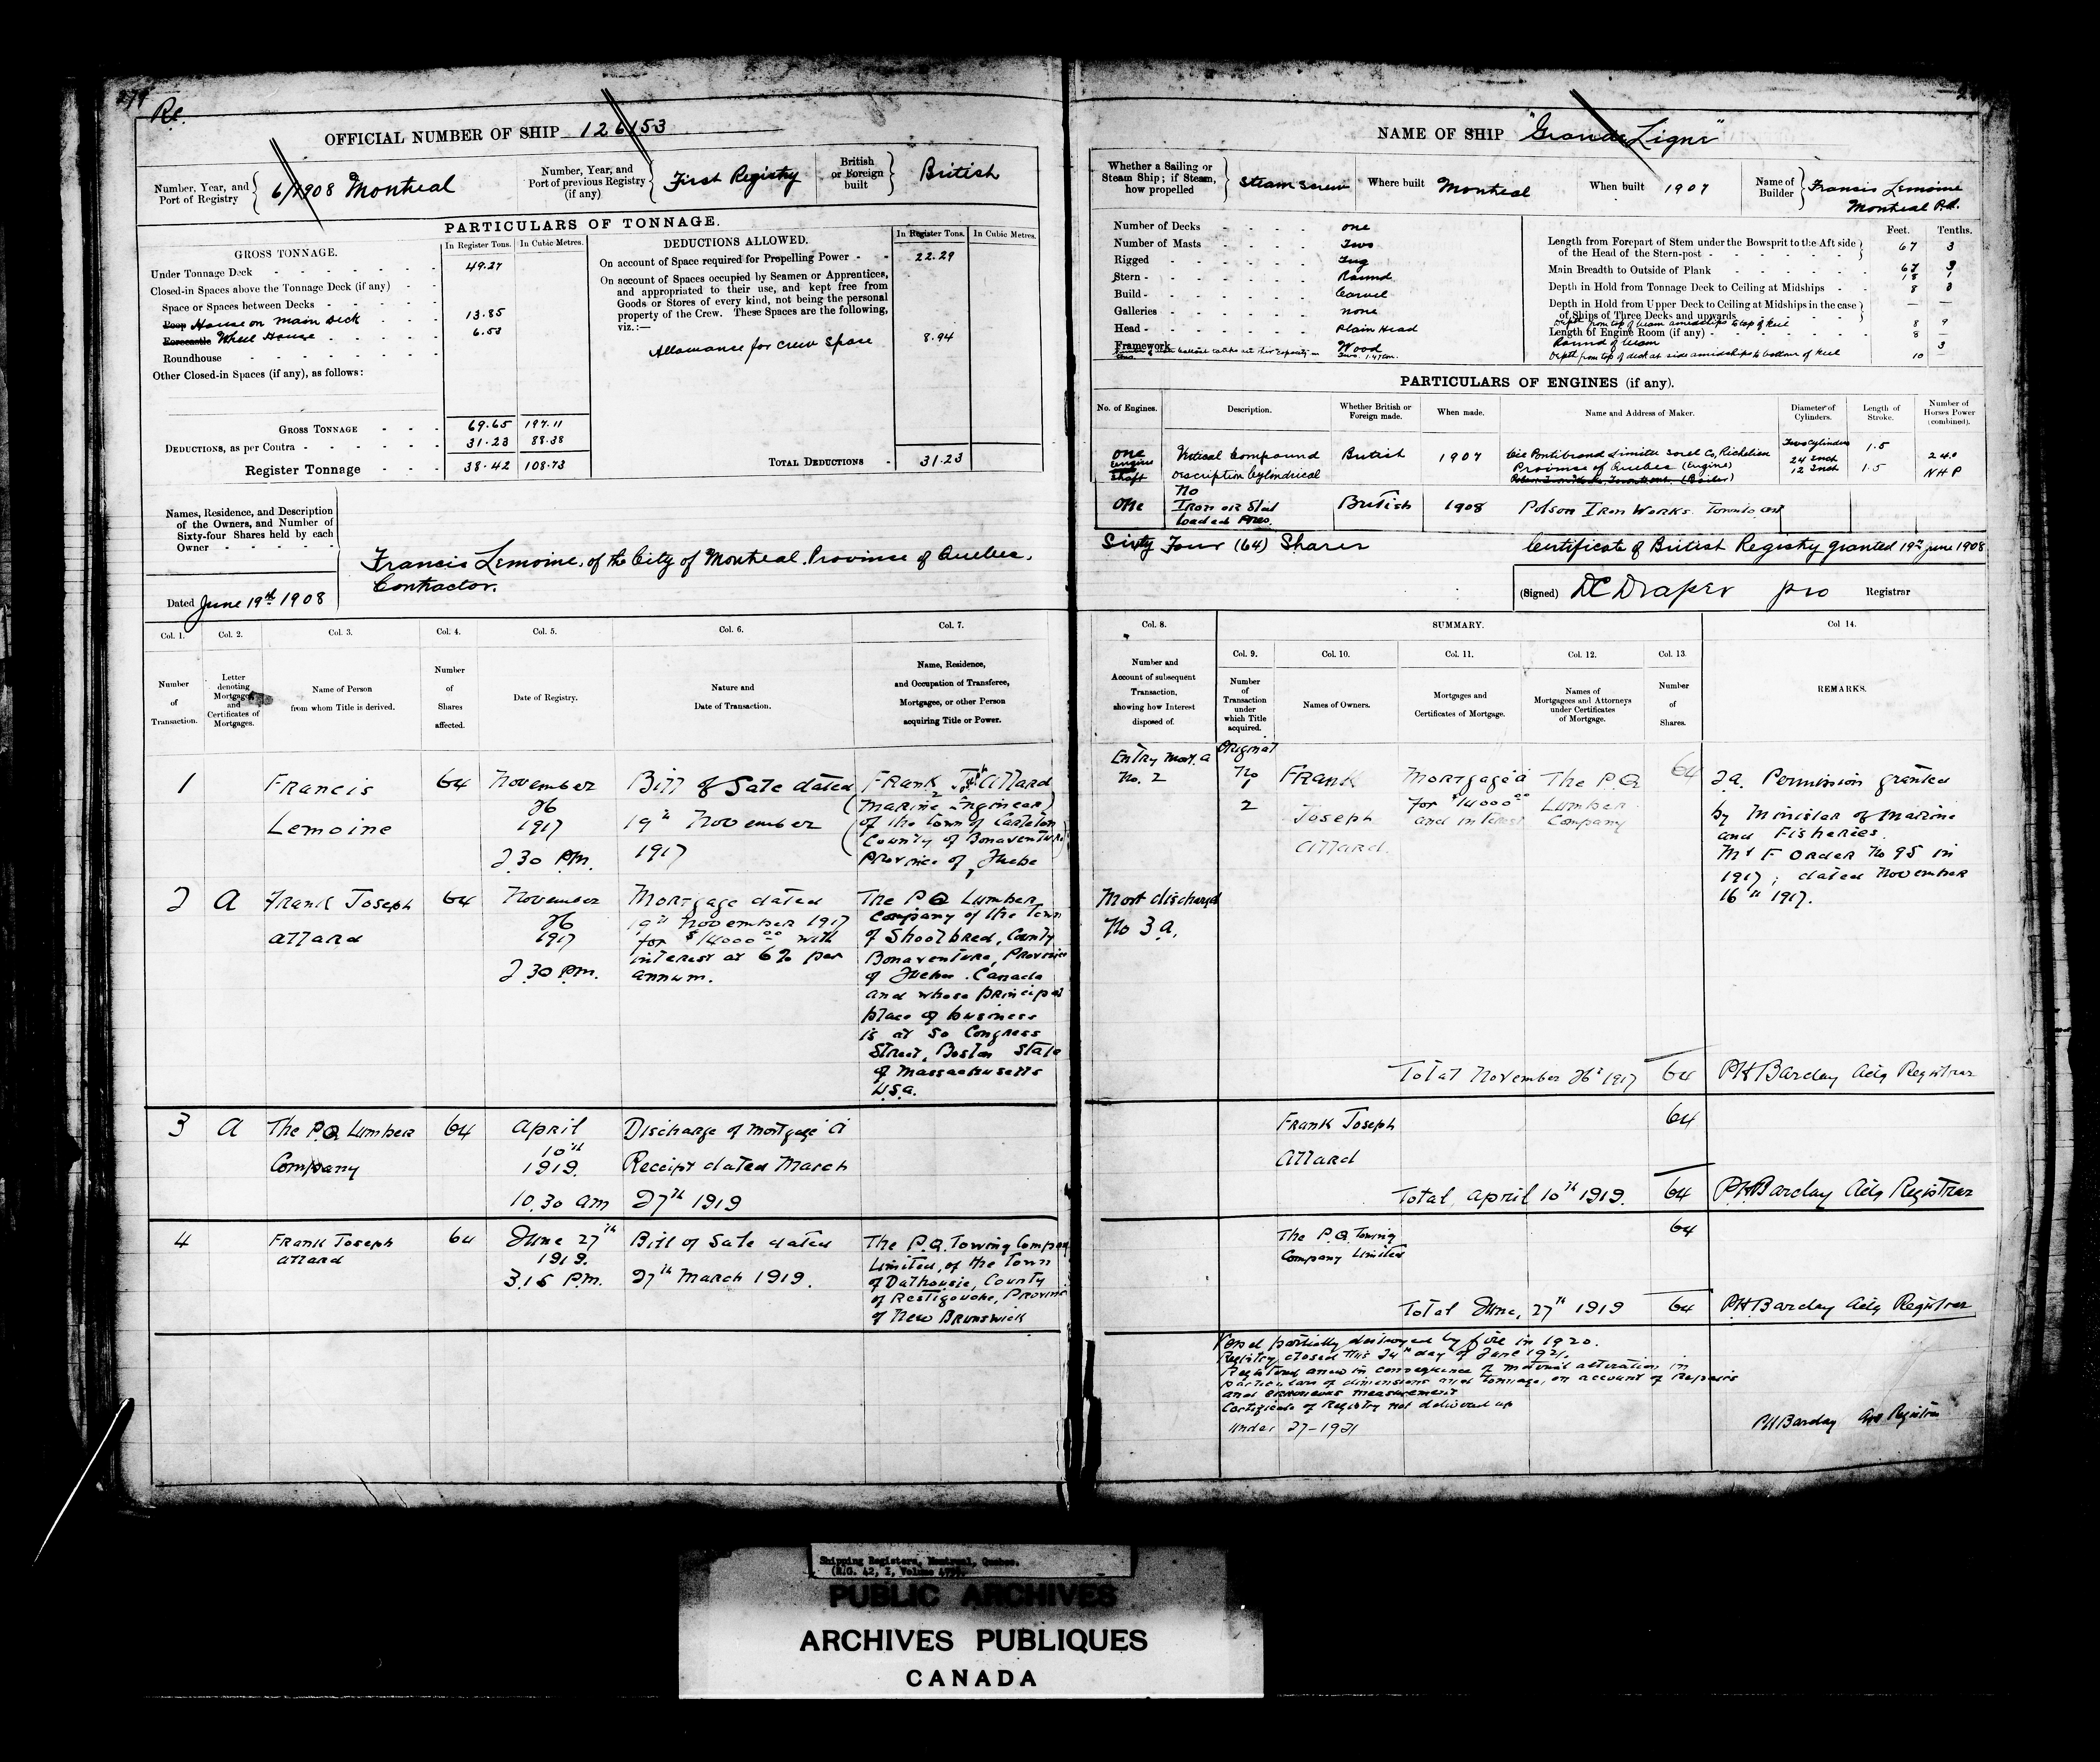 Re.
OFFICIAL NUMBER OF SHIP 126153
Number, Year, and Port of Registry 6/1908 Montreal
Number, Year, and Port of previous Registry (if any) First Registry
British or Foreign built British
PARTICULARS OF TONNAGE.
GROSS TONNAGE. In Register Tons. In Cubic Metres.
Under Tonnage Deck 49.27
Closed-in Spaces above the Tonnage Deck (if any)
Space or Spaces between Decks
Poop House on Main Deck 13.85
Forecastle Wheel House 6.53
Roundhouse
Other Closed-in Spaces (if any), as follows:
GROSS TONNAGE 69.65 197.11
DEDUCTIONS, as per Contra 31.23 88.38
Register Tonnage 38.42 108.73
DEDUCTIONS ALLOWED. In Register Tons. In Cubic Metres.
On account of Space required for Propelling Power 22.29
On account of Spaces occupied by Seamen or Apprentices,
and appropriated to their use, and kept free from
Goods or Stores of every kind, not being the personal
property of the Crew. These Spaces are the following,
viz.:—
Allowance for Crew Space 8.94
TOTAL DEDUCTIONS 31.23
Names, Residence, and Description
of the Owners, and Number of
Sixty-four Shares held by each
Owner
Francis Lemoine, of the City of Montreal, Province of Quebec,
Contractor.
Dated June 19th 1908
NAME OF SHIP "Grande Ligne"
Whether a Sailing or Steam Ship; if Steam, how propelled Steam Screw
Where built Montreal
When built 1907
Name of Builder Francis Lemoine
Montreal P.Q.
Number of Decks one
Number of Masts Two
Rigged Tug
Stern Round
Build Carvel
Galleries none
Head Plain Head
Framework Wood
Feet. Tenths.
Length from Forepart of Stem under the Bowsprit to the Aft side
of the Head of the Stern-post 67 3
Main Breadth to Outside of Plank 18 1
Depth in Hold from Tonnage Deck to Ceiling at Midships 8 8
Depth in Hold from Upper Deck to Ceiling at Midships in the case
of Ships of Three Decks and upwards — —
Depth from top of beam amidships to top of keel 8 9
Length of Engine Room (if any) 8 —
Round of beam 3
Depth from top of deck at side amidships to bottom of keel 10 —
PARTICULARS OF ENGINES (if any).
No. of Engines. Description. Whether British or Foreign made. When made. Name and Address of Maker. Diameter of Cylinders. Length of Stroke. Number of Horses Power (combined).
one Vertical Compound British 1907 Province of Quebec (Engine) Two Cylinders 24 Inch 12 Inch 1.5 1.5 NHP
Engine
Shaft Description Cylindrical
One No Iron or Steel Loaded Pres. British 1908 Polson Iron Works. Toronto Ont
Sixty Four (64) Shares
Certificate of British Registry granted 19th June 1908
(Signed) DC Draper pro Registrar
Col. 1. Col. 2. Col. 3. Col. 4. Col. 5. Col. 6. Col. 7.
Number of Transaction.
Letter denoting Mortgages and Certificates of Mortgages.
Name of Person from whom Title is derived.
Number of Shares affected.
Date of Registry.
Nature and Date of Transaction.
Name, Residence, and Occupation of Transferee, Mortgagee, or other Person acquiring Title or Power.
Col. 8. SUMMARY. Col 14.
Number and Account of subsequent Transaction, showing how Interest disposed of.
Col. 9. Col. 10. Col. 11. Col. 12. Col. 13.
Number of Transaction under which Title acquired.
Names of Owners.
Mortgages and Certificates of Mortgage.
Names of Mortgagees and Attorneys under Certificates of Mortgage.
Number of Shares.
REMARKS.
1
Francis
Lemoine
64
November
26
1917
2.30 P.M.
Bill of Sale dated
19th November
1917
Frank Jos Allard
(Marine Engineer)
of the town of Carleton
County of Bonaventure
Province of Quebec
Entry Mort. A
No. 2
Original
No
1
2
Frank
Joseph
Allard.
Mortgage A
for $14000.00
and interest
The P.Q.
Lumber
Company
64
2A. Permission granted
by Minister of Marine
and Fisheries.
M & F Order No 95 in
1917; dated November
16th 1917.
2 A
Frank Joseph
Allard
64
November
26
1917
2.30 P.M.
Mortgage dated
19th November 1917
for $14000.00 with
interest at 6% per
annum.
The P.Q Lumber
Company of the Town
of Shoolbred, County
Bonaventure, Province
of Quebec. Canada
and whose principal
place of business
is at 50 Congress
Street, Boston State
of Massachusetts
U.S.A.
Mort discharged
No 3 A.
Total November 26th 1917 64 PH Barclay Actg Registrar
3 A
The P.Q. Lumber
Company
64
April
10th
1919.
10.30 am
Discharge of mortgage A
Receipt dated March
27th 1919
Frank Joseph
Allard
64
Total April 10th 1919. 64 PH Barclay Actg Registrar
4
Frank Joseph
Allard
64
June 27th
1919.
3.15 P.M.
Bill of Sale dated
27th March 1919.
The P.Q. Towing Company
Limited, of the Town
of Dalhousie, County
of Restigouche, Province
of New Brunswick
The P.Q. Towing
Company Limited
64
Total June, 27th 1919 64 PH Barclay Actg Registrar
Vessel partially destroyed by fire in 1920.
Registry closed this 24th day of June 1921.
Registered anew in consequence of material alteration in
particulars of dimensions and tonnage, on account of Repairs
and erroneous measurement
Certificate of Registry not delivered up
Under 27-1921
PH Barclay Registrar
Shipping Registers, Montreal, Quebec.
PUBLIC ARCHIVES
ARCHIVES PUBLIQUES
CANADA